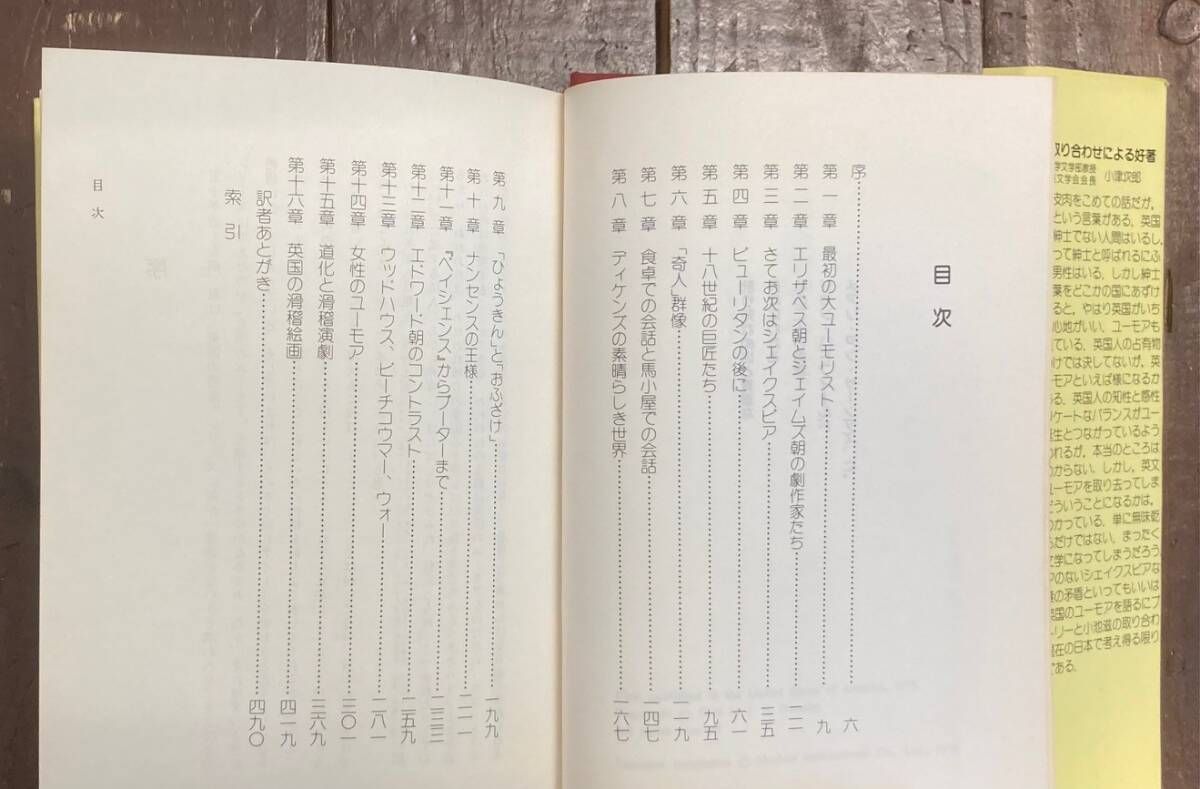 目次
序……六
第一章 最初の大ユーモリスト……九
第二章 エリザベス朝とジェイムズ朝の劇作家たち……二一
第三章 さてお次はシェイクスピア……三五
第四章 ピューリタンの後に……六一
第五章 十八世紀の巨匠たち……九五
第六章 「奇人」群像……一一九
第七章 食卓での会話と馬小屋での会話……一四七
第八章 ディケンズの素晴らしき世界……一六七
第九章 「ひょうきん」と「おふざけ」……一九九
第十章 ナンセンスの王様……二一一
第十一章 『ペイシェンス』からプーターまで……二三三
第十二章 エドワード朝のコントラスト……二五九
第十三章 ウッドハウス、ビーチコウマー、ウォー……二八一
第十四章 女性のユーモア……三〇一
第十五章 道化と滑稽演劇……三六九
第十六章 英国の滑稽絵画……四一九
訳者あとがき……四九〇
索引
目次
取り合わせによる好著
学文学部教授
文学会会長 小津次郎
皮肉をこめての話だが、
という言葉がある。英国
紳士でない人間はいるし、
って紳士と呼ばれるにふ
男性はいる。しかし紳士
葉をどこかの国にあずけ
ると、やはり英国がいち
心地がいい。ユーモアも
ている。英国人の占有物
けでは決してないが、英
ーモアといえば様になるか
る。英国人の知性と感性
リケートなバランスがユー
生とつながっているよう
われるが、本当のところは
からない。しかし、英文
ユーモアを取り去ってしま
どういうことになるかは、
わかっている。単に無味乾
だけではない、まったく
文学になってしまうだろう
アのないシェイクスピアな
の矛盾といってもいいは
英国のユーモアを語るにプ
ーリーと小池滋の取り合わ
在の日本で考え得る限り
である。